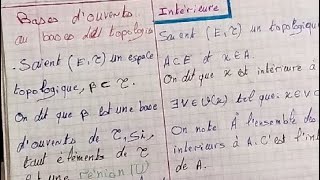 Bases d'ouverts
ou bases de topologie
. Soient (E, τ) un espace
topologique, β ⊂ τ.
On dit que β est une base
d'ouverts de τ, Si,
tout éléments de τ
est une réunion (U)
Intérieure
Soient (E, τ) un topologique
A⊂E et x∈A
On dit que x est intérieure à
∃V∈V(x) tel que: x∈V⊂
On note Å l'ensemble des
interieurs à A. C'est l'int
de A.